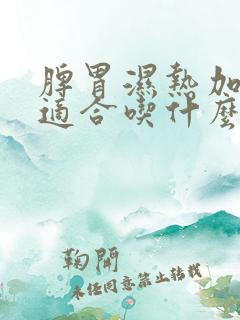 脾胃濕熱加
適合喫什麼
鞠開
未经同意禁止转载